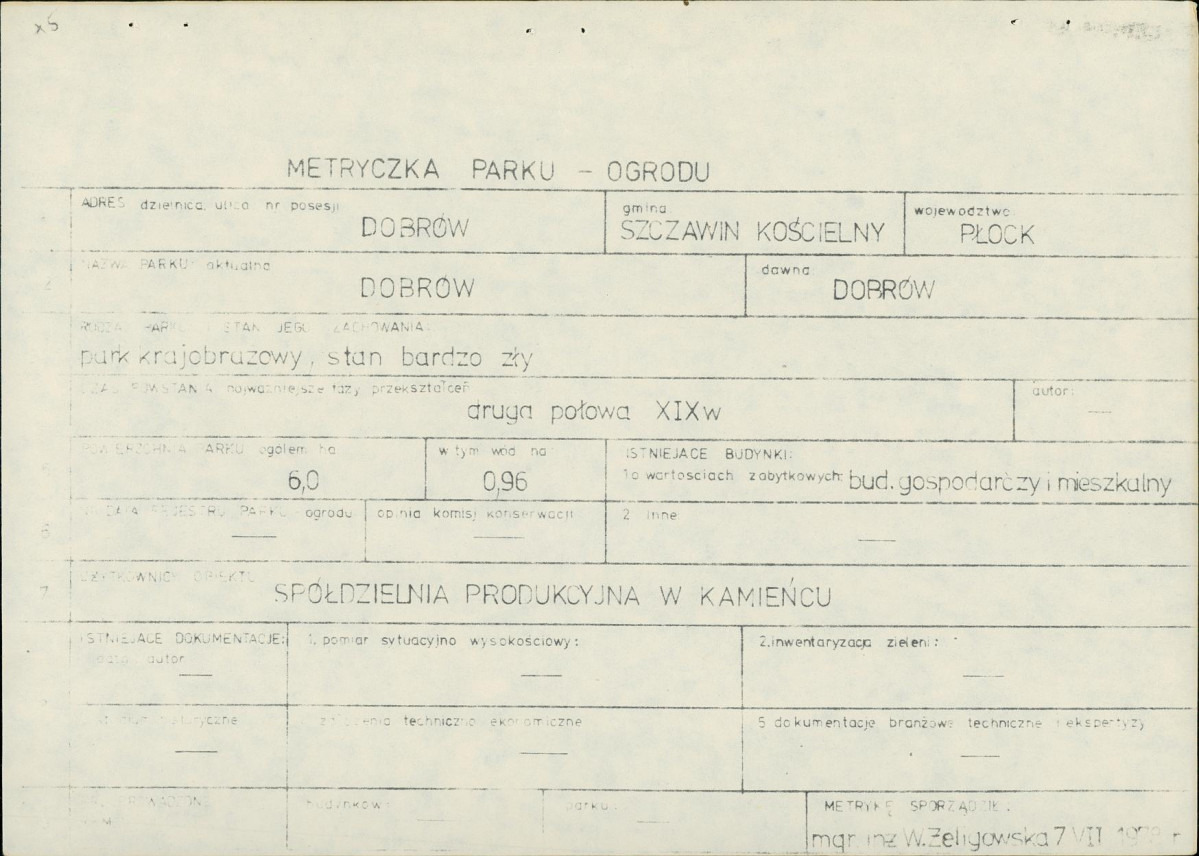 x5
METRYCZKA PARKU - OGRODU
ADRES dzielnica, ulica, nr posesji
DOBRÓW
gmina
SZCZAWIN KOŚCIELNY
województwo
PŁOCK
NAZWA PARKU: aktualna
DOBRÓW
dawna:
DOBRÓW
RODZAJ PARKU I STAN JEGO ZACHOWANIA:
park krajobrazowy, stan bardzo zły
CZAS POWSTANIA, najważniejsze fazy przekształceń
druga połowa XIX w
autor:
—
5
POWIERZCHNIA PARKU ogółem ha
6,0
w tym wód ha
0,96
ISTNIEJACE BUDYNKI:
1 o wartosciach zabytkowych: bud. gospodarczy i mieszkalny
6
DATA REJESTRU PARKU - ogrodu
—
opinia komisji konserwacji
—
2 inne
—
7
UŻYTKOWNICY OBIEKTU
SPÓŁDZIELNIA PRODUKCYJNA W KAMIEŃCU
ISTNIEJACE DOKUMENTACJE:
data autor
—
1. pomiar sytuacyjno wysokościowy:
—
2. inwentaryzacja zieleni:
—
historyczne
—
założenia techniczno ekonomiczne
—
5 dokumentacje branżowe techniczne i ekspertyzy
—
budynków:
—
parku:
—
METRYKĘ SPORZĄDZIŁ:
mgr inż W. Żeligowska 7 VII r